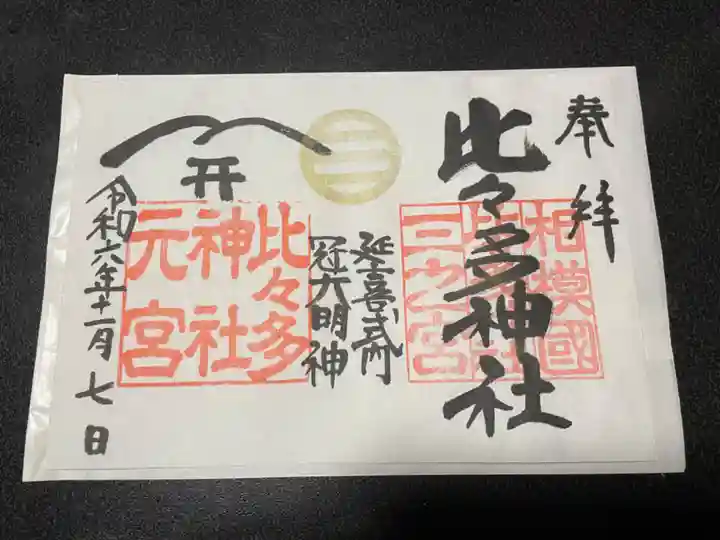 奉拝
比々多神社
相模國
比々多神社
三之宮
延喜式内
冠大明神
三
比々多
神社
元宮
令和六年十一月七日